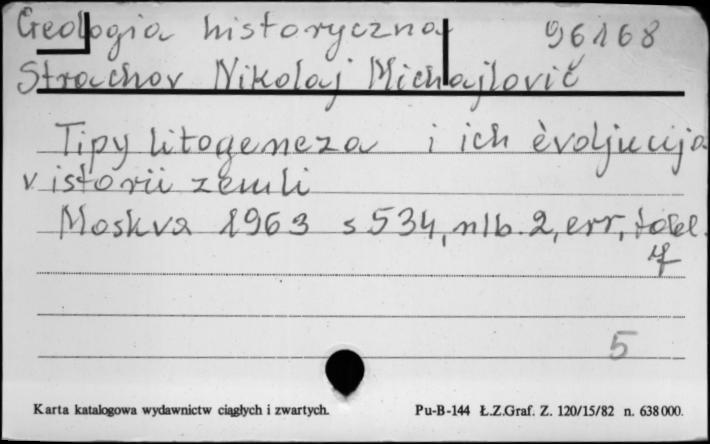 Geologia historyczna 96168
Strachov Nikolaj Michajlovič
Tipy litogeneza i ich èvoljucija
v istorii zemli
Moskva 1963 s 534, nlb. 2, err, tabel.
5
Karta katalogowa wydawnictw ciągłych i zwartych. Pu-B-144 Ł.Z.Graf. Z. 120/15/82 n. 638 000.